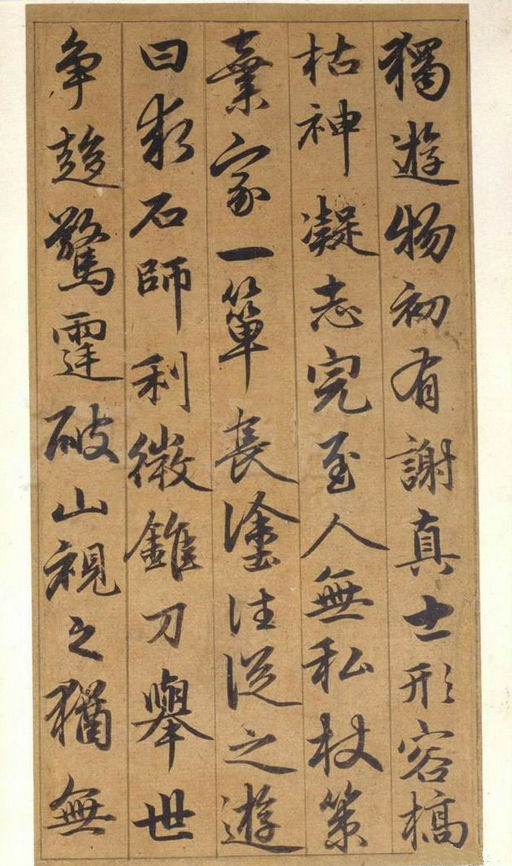 獨遊物初有謝真士形容槁
枯神凝志完至人無私杖策
棄家一簞長塗往從之遊
曰求石師利徵錐刀舉世
争趍驚霆破山視之猶無